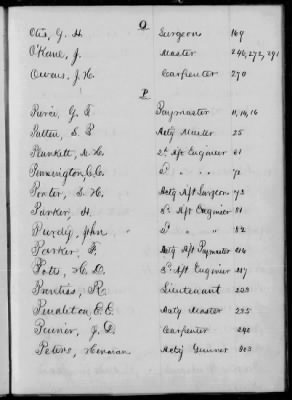 O
Otis, G. H. Surgeon 169
O'Kane, J. Master 246, 272, 291
Owens, J. H. Carpenter 270
P
Pierce, G. E Paymaster 11, 14, 16
Patten, S. P Actg Master 25
Plunkett, 2d Asst Engineer 61
Pennington, C. C. " " 72
Porter, S. H. Actg Asst Surgeon 73
Parker, H. 3d Asst Engineer 81
Purdy, John " " 82
Parker, F. Actg Asst Paymaster
Potts, H. D. 3d Asst Engineer 217
Prentiss, R. Lieutenant 223
Pendleton, E. E. Actg Master 235
J. D. Carpenter 242
Peters, Herman Actg Gunner 303